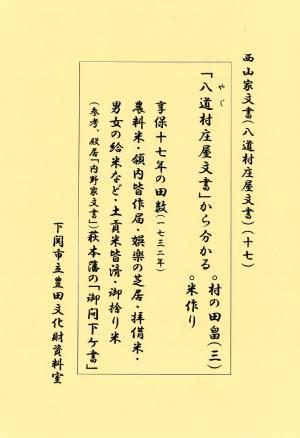 西山家文書(八道村庄屋文書)(十七)
やじ
「八道村庄屋文書」から分かる
○村の田畠(三)
○米作り
享保十七年の田数(一七三二年)
農料米・領内皆作届・娯楽の芝居・拝借米・
男女の給米など・土貢米皆済・御捨り米
(参考、殿居「内野家文書」)萩本藩の「御問下ケ書」
下関市立豊田文化財資料室